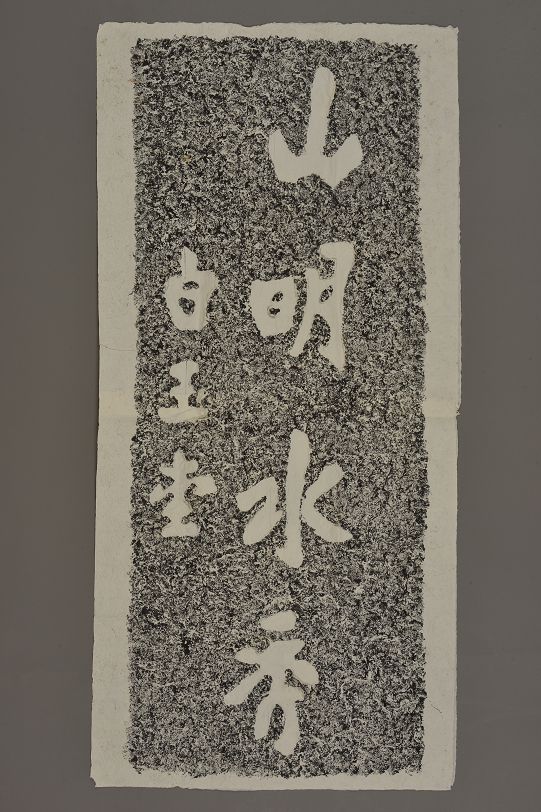 山明水秀
白玉奎